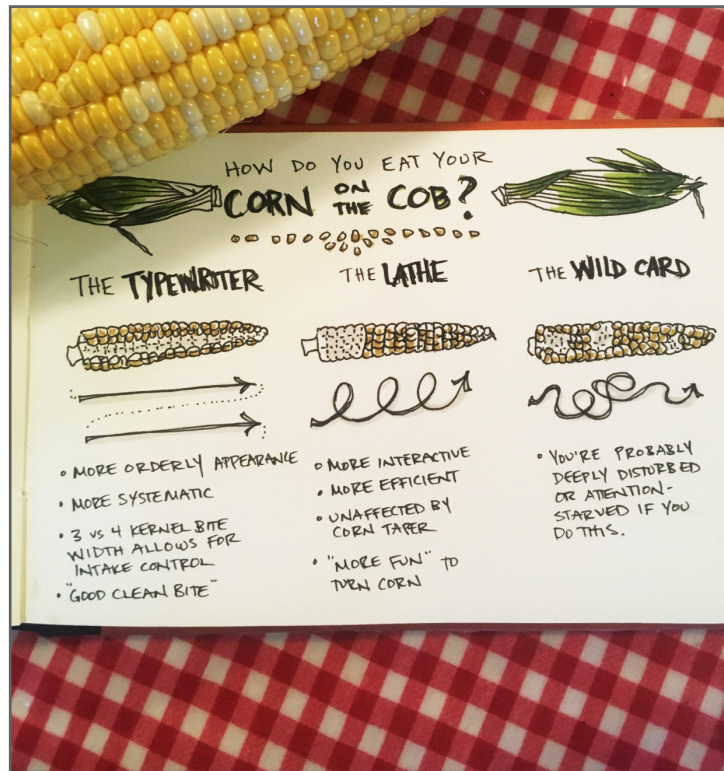 HOW DO YOU EAT YOUR
CORN ON THE COB?
THE TYPEWRITER
• MORE ORDERLY APPEARANCE
• MORE SYSTEMATIC
• 3 VS 4 KERNEL BITE
WIDTH ALLOWS FOR
INTAKE CONTROL
• "GOOD CLEAN BITE"
THE LATHE
• MORE INTERACTIVE
• MORE EFFICIENT
• UNAFFECTED BY
CORN TAPER
• "MORE FUN" TO
TURN CORN
THE WILD CARD
• YOU'RE PROBABLY
DEEPLY DISTURBED
OR ATTENTION-
STARVED IF YOU
DO THIS.